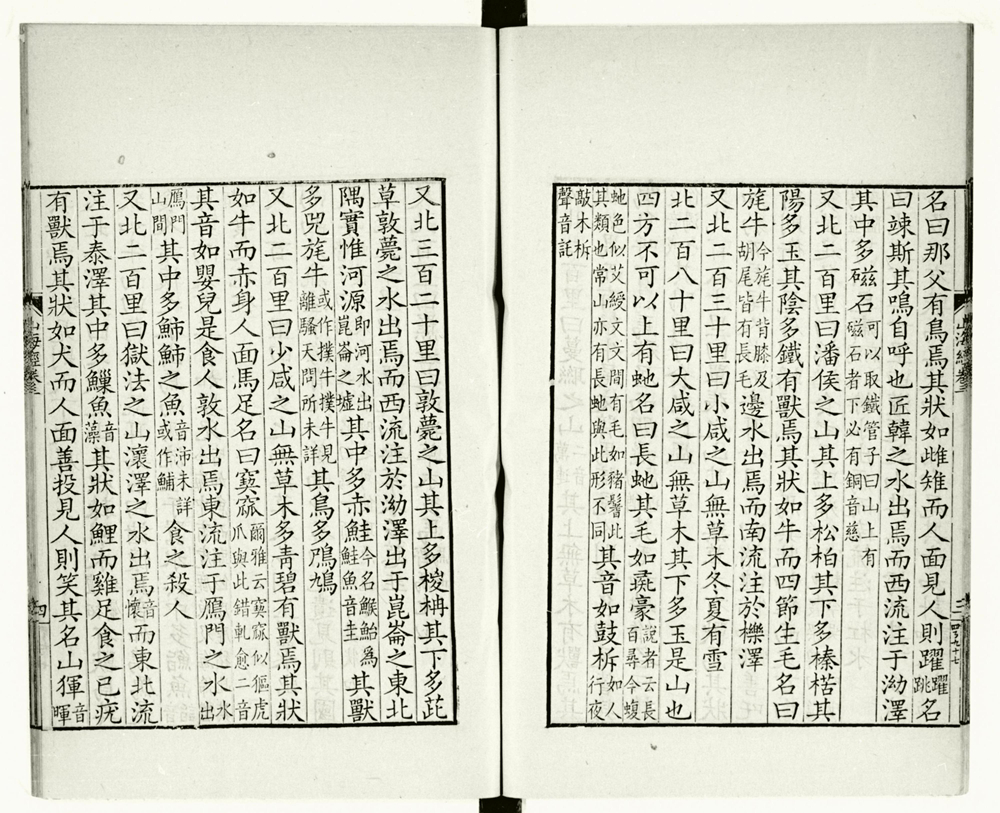 名曰那父有鳥焉其狀如雌雉而人面見人則躍躍跳名
曰竦斯其鳴自呼也匠韓之水出焉而西流注于泑澤
其中多磁石可以取鐵管子曰山上有礠石者下必有銅音慈
又北二百里曰潘侯之山其上多松柏其下多榛楛其
陽多玉其陰多鐵有獸焉其狀如牛而四節生毛名曰
旄牛今旄牛背膝及胡尾皆有長毛邊水出焉而南流注於櫟澤
又北二百三十里曰小咸之山無草木冬夏有雪
北二百八十里曰大咸之山無草木其下多玉是山也
四方不可以上有虵名曰長虵其毛如彘豪說者云長百尋今蝮
虵色似艾綬文文間有毛如豬鬐此其類也常山亦有長虵與此形不同其音如鼓柝如人行夜
敲木柝聲音託
又北三百二十里曰敦薨之山其上多椶枏其下多茈
草敦薨之水出焉而西流注於泑澤出于崑崙之東北
隅實惟河源即河水出崑崙之墟其中多赤鮭今名鯸鮐為鮭魚音圭其獸
多兕旄牛或作撲牛撲牛見離騷天問所未詳其鳥多鳲鳩
又北二百里曰少咸之山無草木多青碧有獸焉其狀
如牛而赤身人面馬足名曰窫窳爾雅云窫窳似貙虎爪與此錯軋愈二音
其音如嬰兒是食人敦水出焉東流注于鴈門之水水出
鴈門山間其中多䰽䰽之魚音沛未詳或作鯆食之殺人
又北二百里曰獄法之山瀤澤之水出焉音懷而東北流
注于泰澤其中多鱲魚音藻其狀如鯉而雞足食之已疣
有獸焉其狀如犬而人面善投見人則笑其名山𤟤音暉
山海經卷三
四